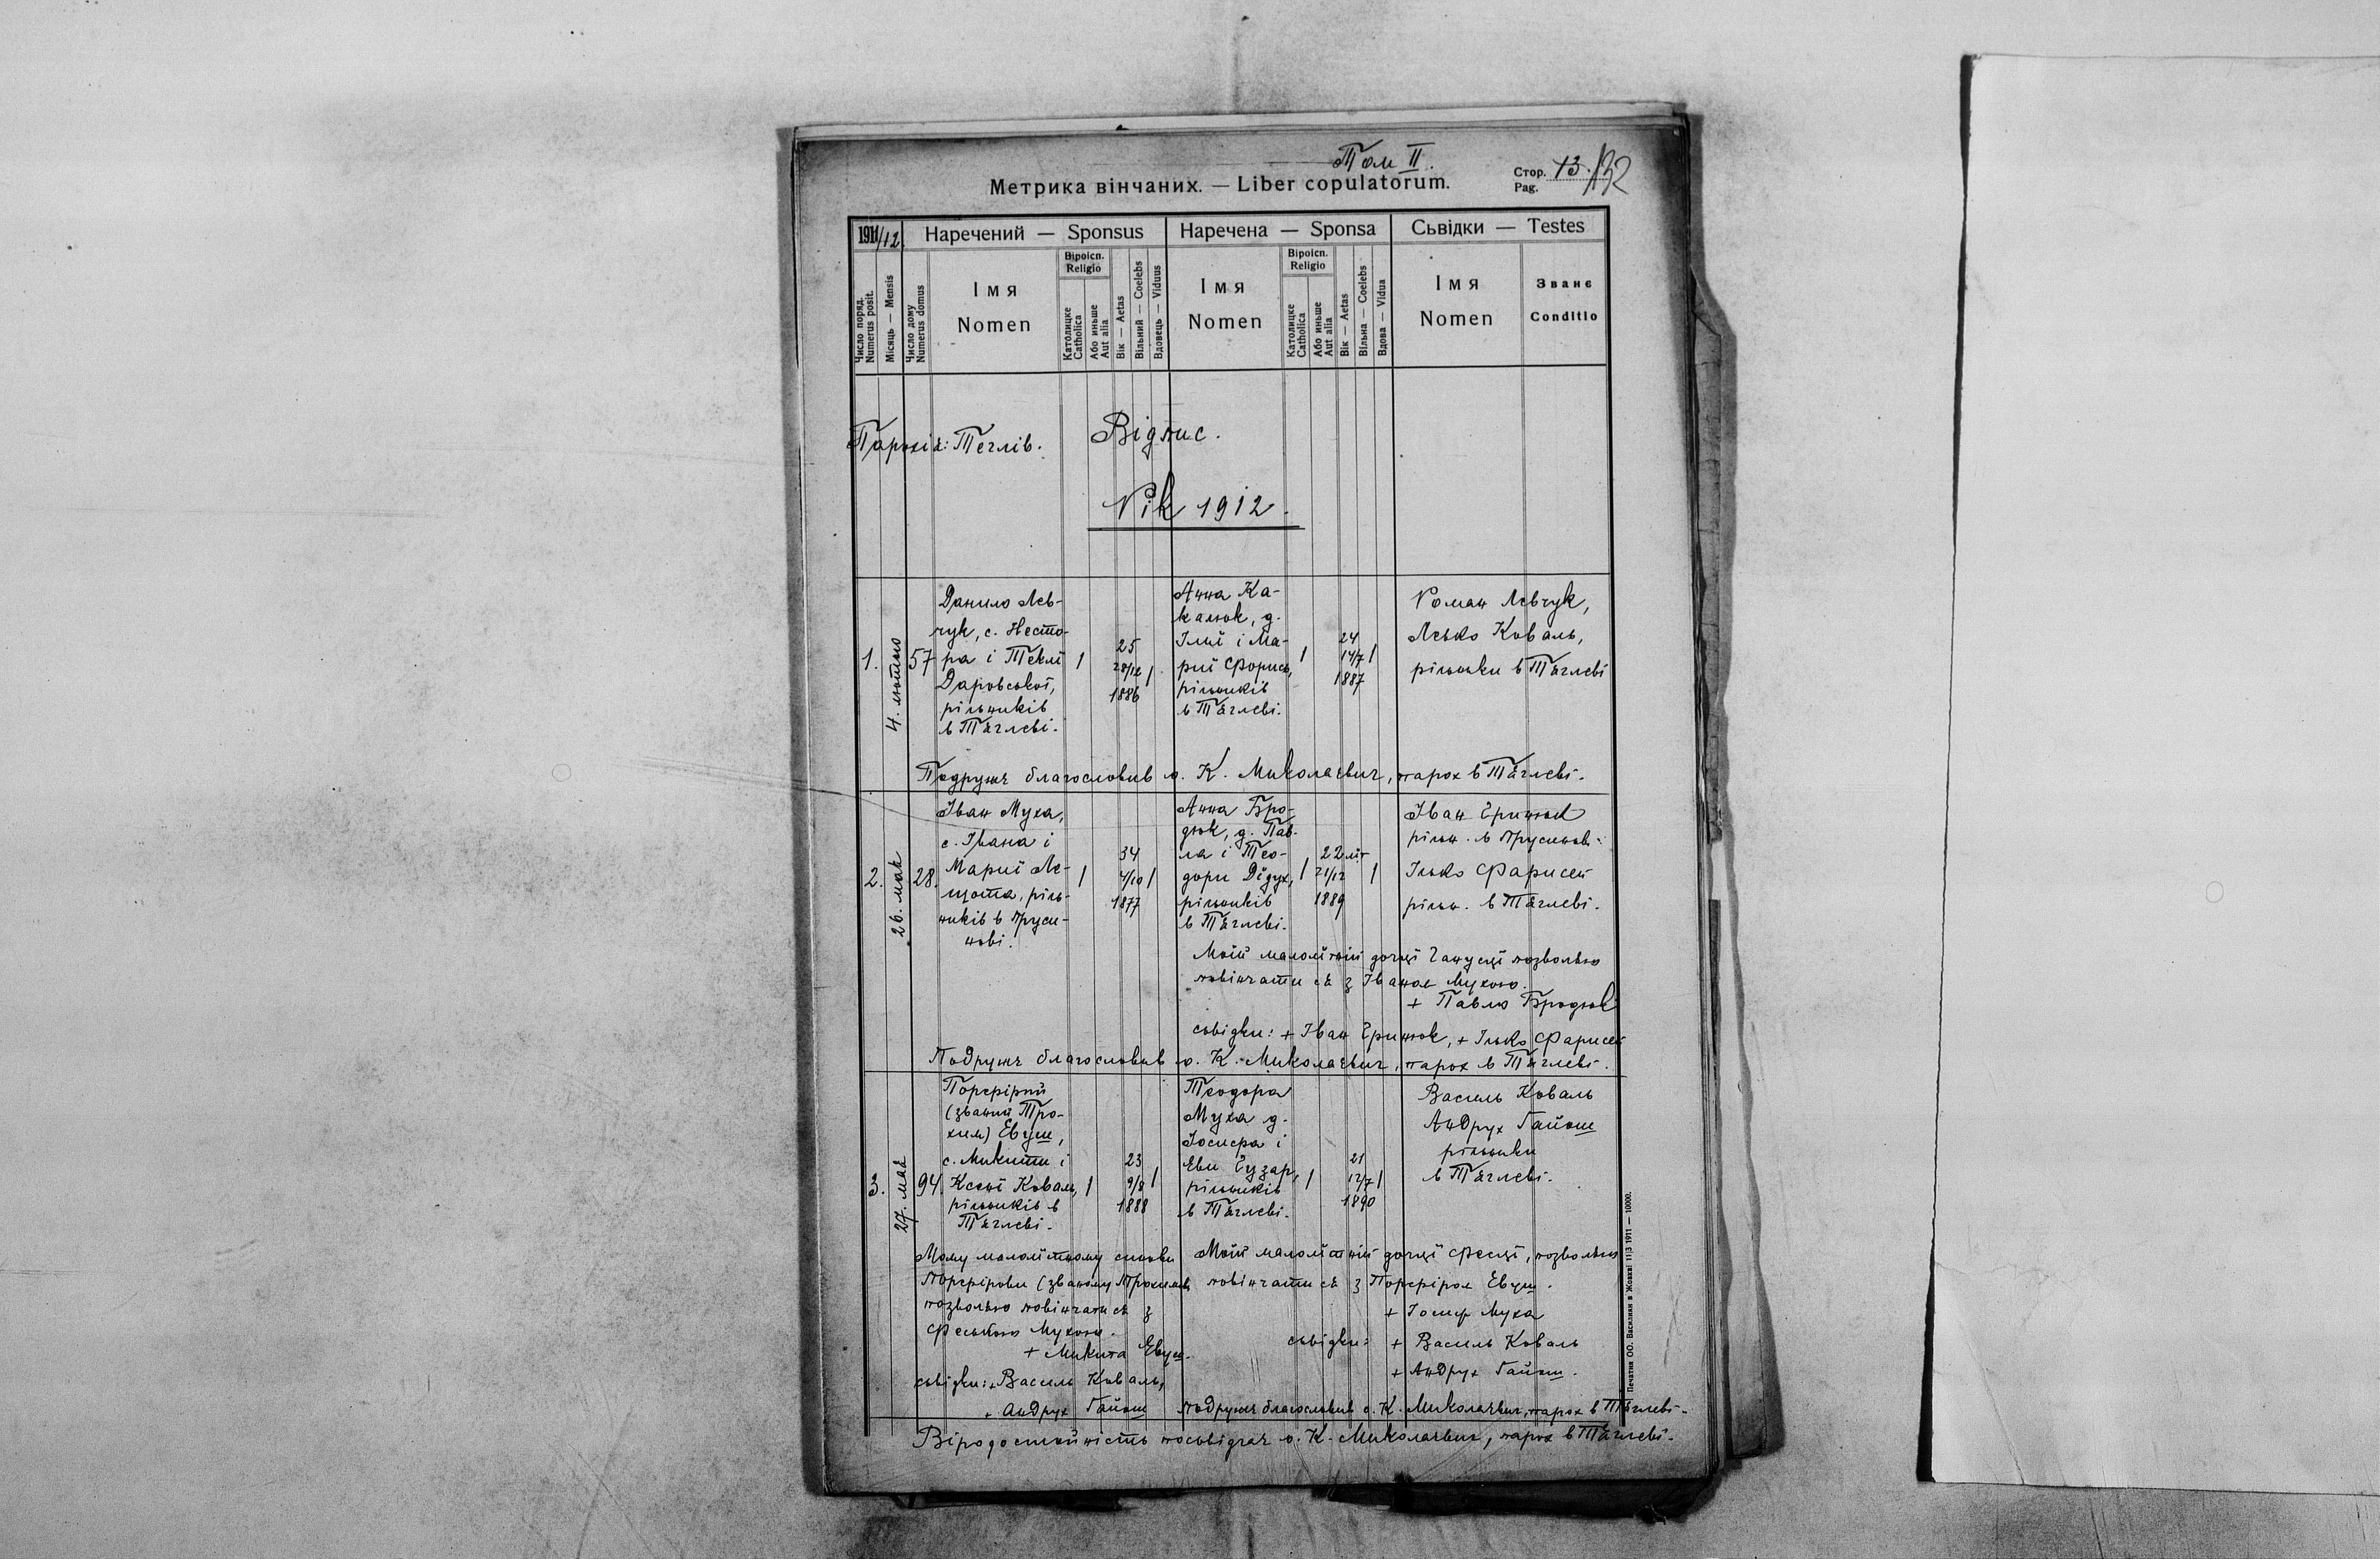 Том II.
Метрика вінчаних. — Liber copulatorum.
Стор. 13.
Pag.
132
1911/12.
Наречений — Sponsus
Наречена — Sponsa
Сьвідки — Testes
Число поряд.
Numerus posit.
Місяць — Mensis
Число дому
Numerus domus
Імя
Nomen
Віроісп.
Religio
Католицке
Catholica
Або иньше
Aut alia
Вік — Aetas
Вільний — Coelebs
Вдовець — Viduus
Імя
Nomen
Віроісп.
Religio
Католицке
Catholica
Або иньше
Aut alia
Вік — Aetas
Вільна — Coelebs
Вдова — Vidua
Імя
Nomen
Званє
Conditio
Парохія: Тяглів.
Відпис.
Рік 1912.
1.
4. лютого
57
Данило Лев-
чук, с. Несто-
ра і Теклї
Даровської,
рільників
в Тяглеві.
1
25
28/12
1886
1
Анна Ка-
калюк, д.
Ілії і Ма-
риї Форись,
рільників
в Тяглеві.
1
24
14/7
1887
1
Роман Левчук,
Лесько Коваль,
рільники в Тяглеві
Подружє благословив о. К. Миколаєвич, парох в Тяглеві.
2.
26. мая
28.
Іван Муха,
с. Івана і
Марії Ле-
щота,ріль-
ників в Пруси-
нові.
1
34
7/10
1877
1
Анна Бро-
дюк, д. Пав-
ла і Тео-
дори Дїдух,
рільників
в Тяглеві.
1
22 літ
21/12
1889
1
Іван Гринюк
рільн. в Прусинові
Ілько Фарисей
рільн. в Тяглеві.
Моїй малолїтній доньцї Ганусцї позваляю
повінчати ся з Іваном Мухою.
+ Павло Бродюк
сьвідки: + Іван Гринюк, + Ілько Фарисей
Подружє благословив о. К. Миколаєвич, парох в Тяглеві.
3.
27. мая
94.
Порфірий
(званий Про-
хим) Евуш,
с. Микити і
Ксенї Коваль,
рільників в
Тяглеві.
1
23
9/8
1888
1
Теодора
Муха д.
Йосифа і
Еви Гузар,
рільників
в Тяглеві.
1
21
12/7
1890
1
Василь Коваль
Андрух Гайош
рільники
в Тяглеві.
Мому малолїтному синови
Порфірови (званому Прохимом)
позваляю повінчати ся з
Феською Мухою.
+ Микита Евуш.
сьвідки: + Василь Коваль,
+ Андрух Гайош
Моїй малолїтній доньцї Фесцї, позваляю
повінчати ся з Порфіром Евуш.
+ Йосиф Муха
сьвідки: + Василь Коваль
+ Андрух Гайош.
Подружє благословив о. К. Миколаєвич, парох в Тяглеві.
Віродостойність посьвідчає о. К. Миколаєвич, парох в Тяглеві.
Печатня ОО. Василиян в Жовкві 11|3 1911 — 10000.